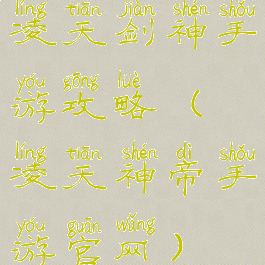 líng tiān jiàn shén shǒu
凌天剑神手
yóu gōng lüè
游攻略（
líng tiān shén dì shǒu
凌天神帝手
yóu guān wǎng
游官网）